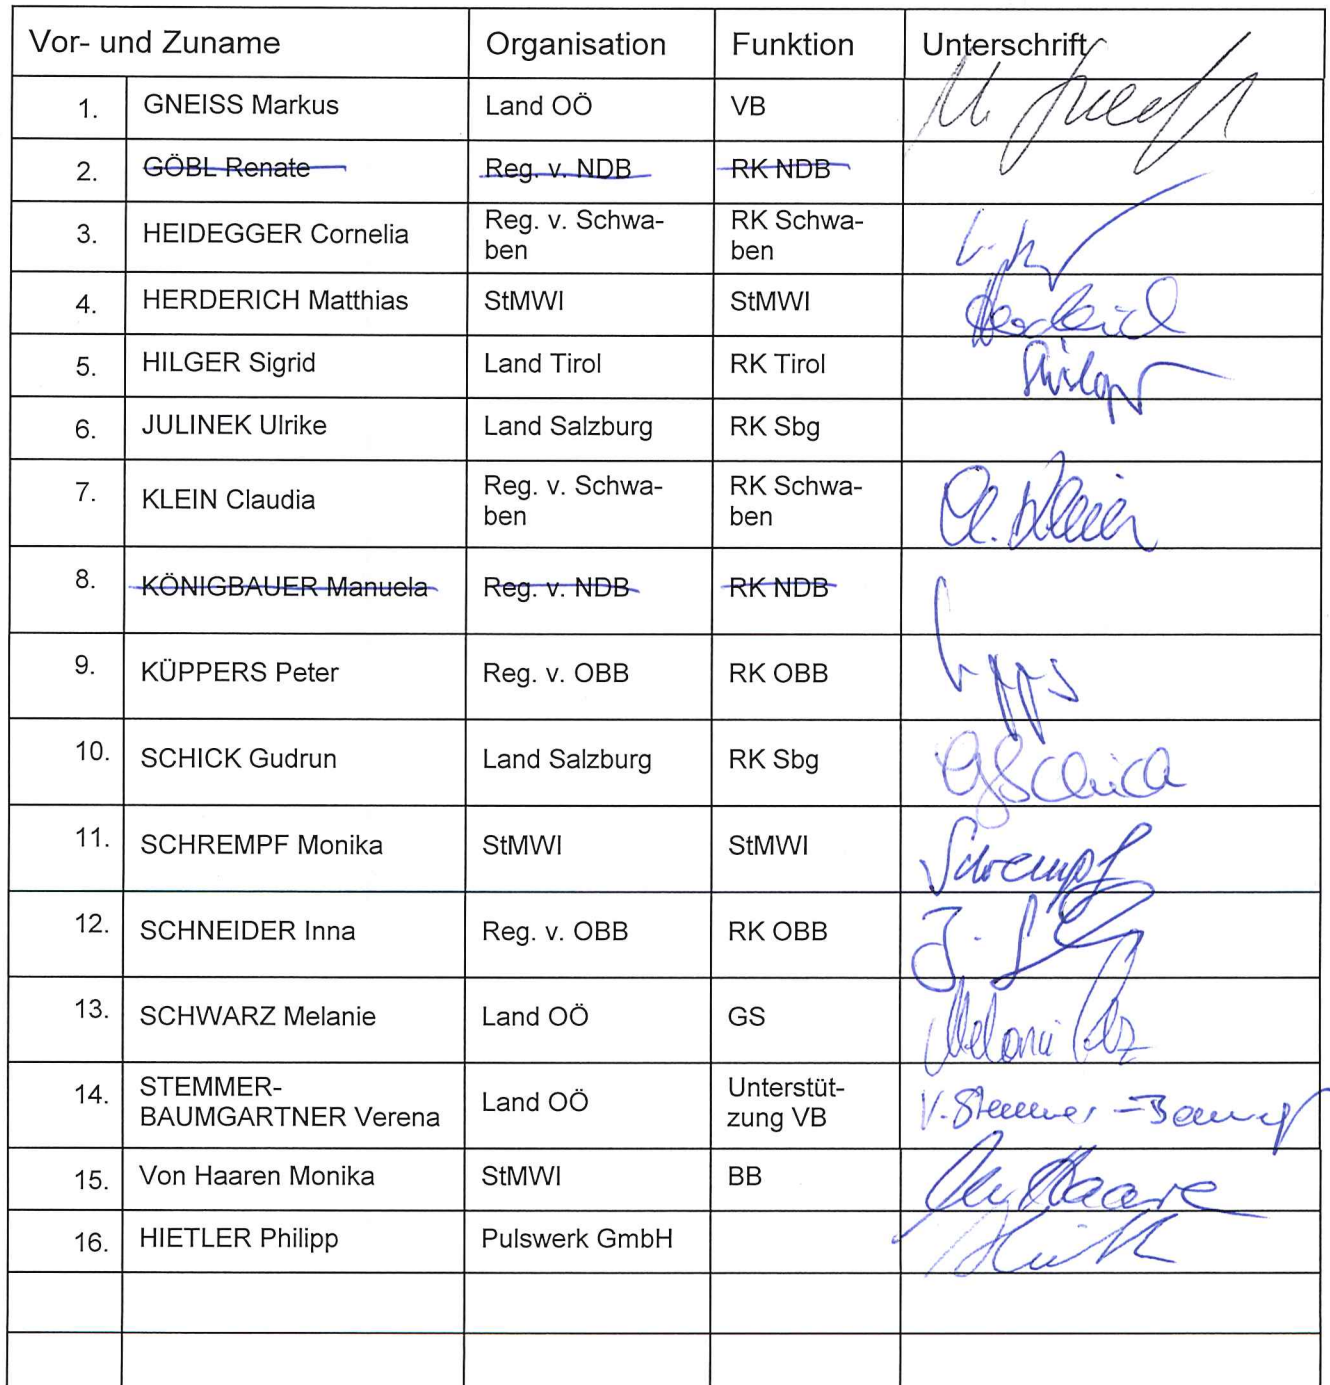 Vor- und Zuname Organisation Funktion Unterschrift
1. GNEISS Markus Land OÖ VB
2. GÖBL Renate Reg. v. NDB RK NDB
3. HEIDEGGER Cornelia Reg. v. Schwa- RK Schwa-
ben ben
4. HERDERICH Matthias StMWI StMWI Herderich
5. HILGER Sigrid Land Tirol RK Tirol
6. JULINEK Ulrike Land Salzburg RK Sbg
7. KLEIN Claudia Reg. v. Schwa- RK Schwa- Cl. Klein
ben ben
8. KÖNIGBAUER Manuela Reg. v. NDB RK NDB
9. KÜPPERS Peter Reg. v. OBB RK OBB
10. SCHICK Gudrun Land Salzburg RK Sbg GSchick
11. SCHREMPF Monika StMWI StMWI Schrempf
12. SCHNEIDER Inna Reg. v. OBB RK OBB
13. SCHWARZ Melanie Land OÖ GS Melanie
14. STEMMER- Unterstüt-
BAUMGARTNER Verena Land OÖ zung VB V. Stemmer-Baumg
15. Von Haaren Monika StMWI BB
16. HIETLER Philipp Pulswerk GmbH